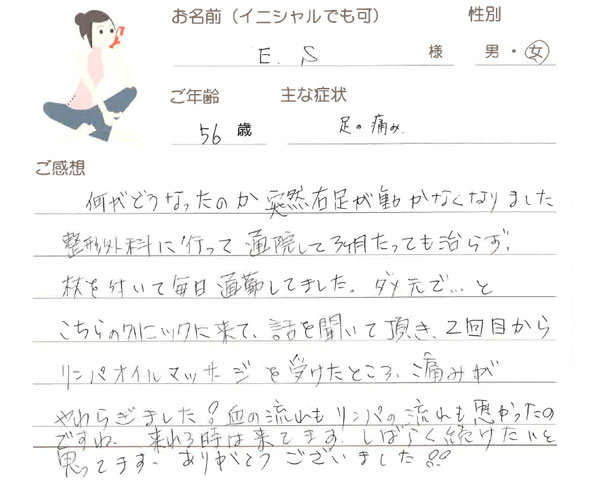 お名前（イニシャルでも可） 性別
E. S 様 男・女
ご年齢 主な症状
56 歳 足の痛み.
ご感想
何がどうなったのか 突然右足が動かなくなりました
整形外科に行って 通院して3ヶ月たっても治らず、
杖を付いて毎日通勤してました。ダメ元で…と
こちらのクリニックに来て、話を聞いて頂き、2回目から
リンパオイルマッサージを受けたところ、痛みが
やわらぎました！血の流れもリンパの流れも悪かったの
ですね、来れる時は来てます、しばらく続けたいと
思ってます、ありがとうございました!!